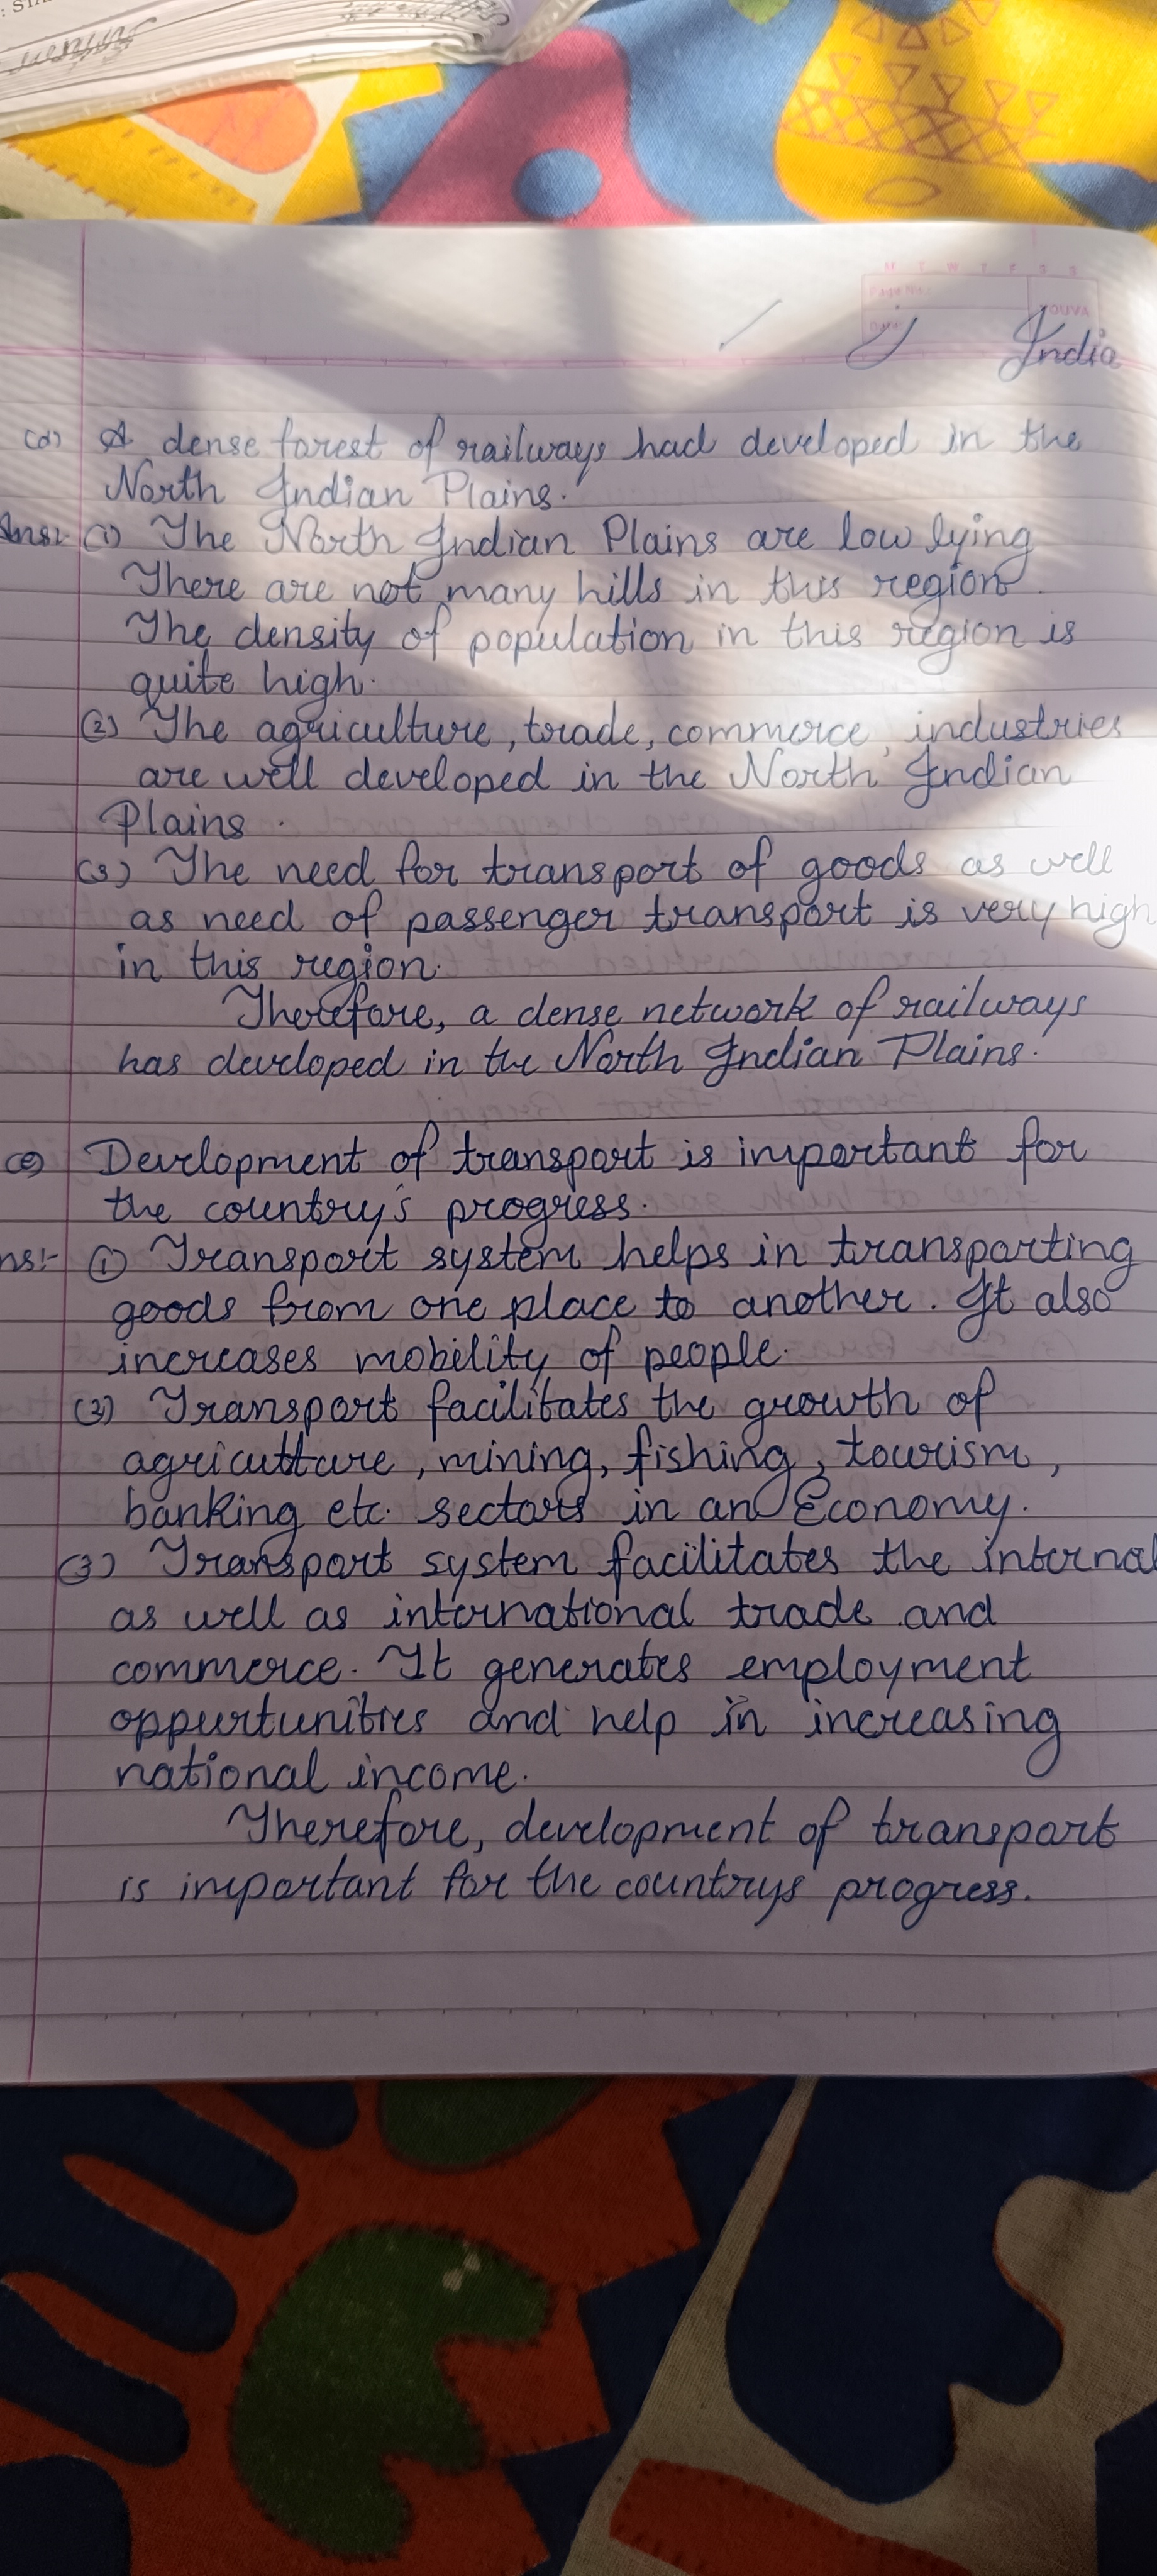 M T W T F S S
Page No.:
YOUVA
India
(d) A dense forest of railways had developed in the
North Indian Plains.
Ans:- (1) The North Indian Plains are low lying
There are not many hills in this region.
The density of population in this region is
quite high.
(2) The agriculture, trade, commerce, industries
are well developed in the North Indian
Plains.
(3) The need for transport of goods as well
as need of passenger transport is very high
in this region.
Therefore, a dense network of railways
has developed in the North Indian Plains.
(e) Development of transport is important for
the country's progress.
ns:- (1) Transport system helps in transporting
goods from one place to another. It also
increases mobility of people.
(2) Transport facilitates the growth of
agricutture, mining, fishing, tourism,
banking etc. sectors in an Economy.
(3) Transport system facilitates the internal
as well as international trade and
commerce. It generates employment
oppurtunities and help in increasing
national income.
Therefore, development of transport
is important for the countrys progress.